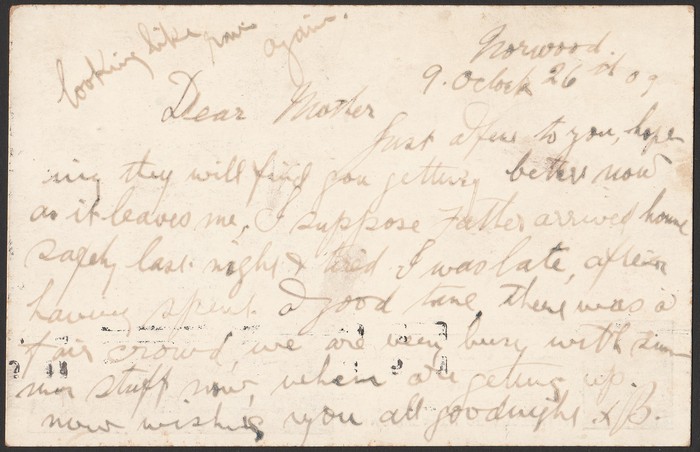 looking like again.
Norwood.
9. Oclock 26 09
Dear Mother
Just a few to you, hope
ing they will find you getting better now
as it leaves me, I suppose Father arrived home
safely last night & tired I was late, after
having spent a good time, there was a
fair crowd, we are very busy with sum
mer stuff now, when are getting up.
now wishing you all goodnight. x B.